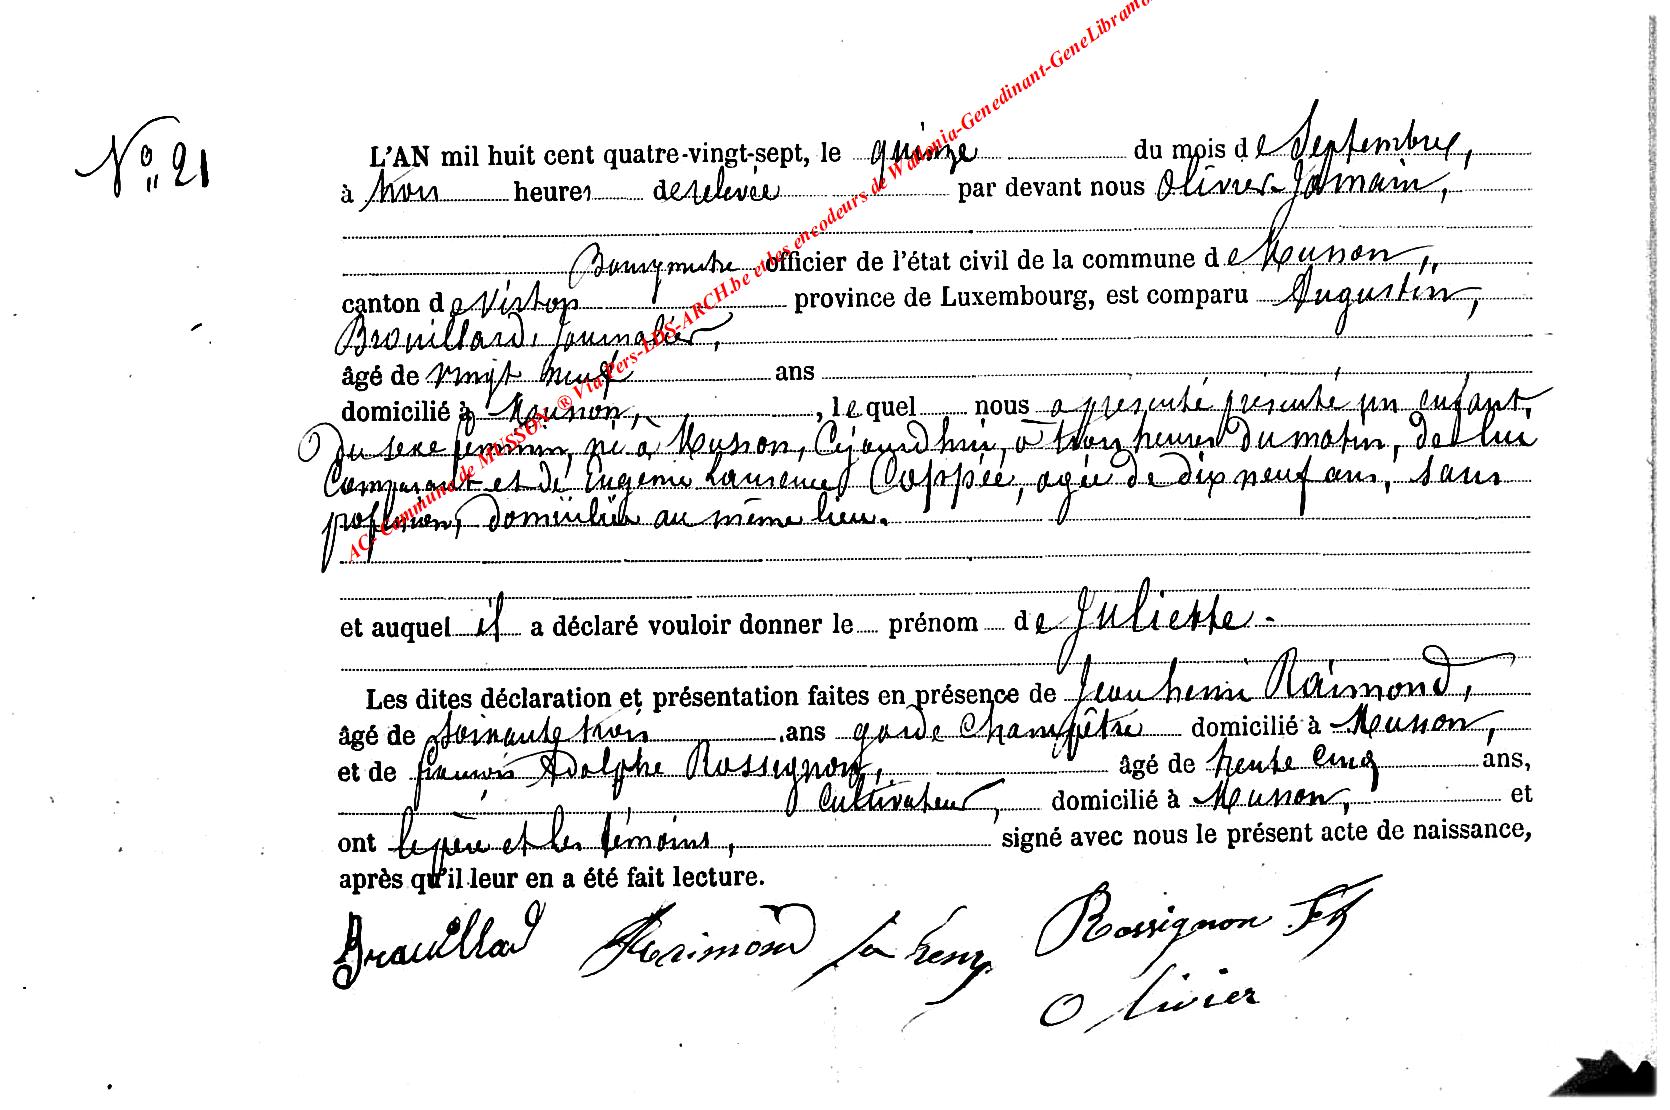 N° 21
L'AN mil huit cent quatre-vingt-sept, le quinze du mois de Septembre,
à trois heures de relevée par devant nous Olivier Jamain,
Bourgmestre officier de l'état civil de la commune de Musson,
canton de Virton province de Luxembourg, est comparu Augustin,
Brouillard, Journalier,
âgé de vingt neuf ans
domicilié à Musson, , lequel nous a présenté présenté un enfant,
Du sexe féminin, né à Musson, Cejourd'hui, à trois heures Du matin, de lui
Comparant et de Eugénie Laurence Coppée, agée de dix neuf ans, sans
profession, Domiciliée au même lieu.
et auquel il a déclaré vouloir donner le prénom de Juliette -
Les dites déclaration et présentation faites en présence de Jean henri Raimond,
âgé de soixante trois ans garde Champêtre domicilié à Musson,
et de françois Adolphe Rossignon, âgé de trente Cinq ans,
Cultivateur, domicilié à Musson, et
ont le père et les témoins, signé avec nous le présent acte de naissance,
après qu'il leur en a été fait lecture.
Brouillard Raimond Rossignon
Olivier
AC. Commune de MUSSON. ® Via Pers-LDS-ARCH.be et les encodeurs de Wallonia-Genedinant-GeneLibramo